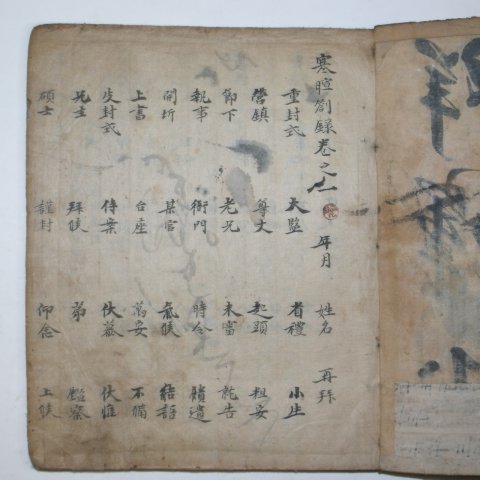 寒暄箚錄卷之一 年月 姓名 再拜
重封式 大監 省禮 小生
營鎭 尊丈 起頭 粗安
節下 老兄 未審 就告
執事 衙門 時令 饋遺
開坼 某官 氣候 結語
上書 台座 萬安 不備
皮封式 侍案 伏慕 伏惟
先生 拜候 第 鑑察
碩士 謹封 仰念 上候